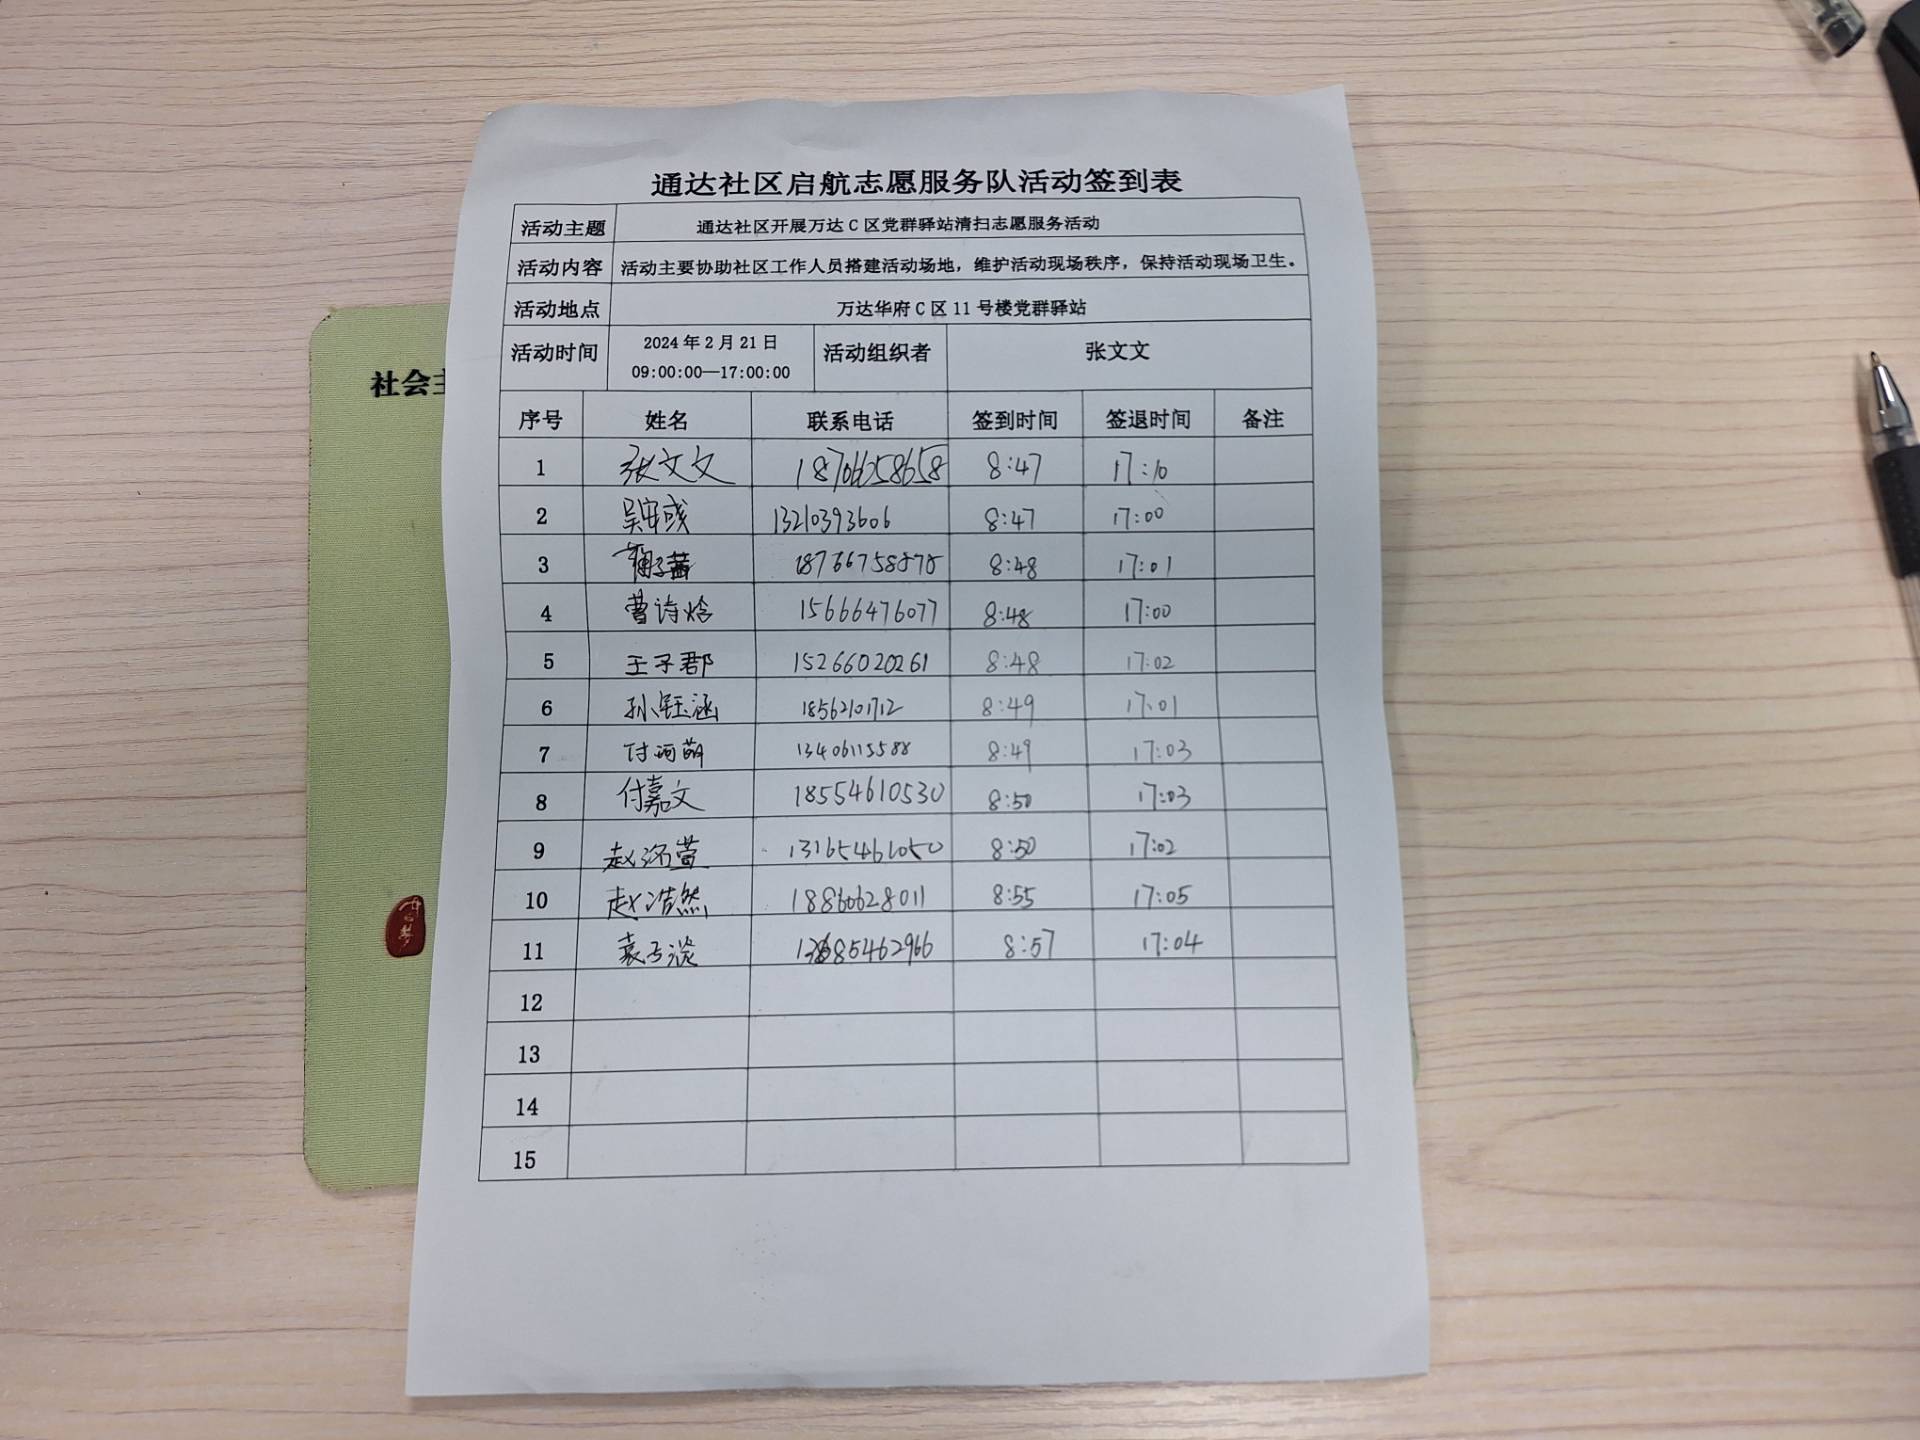 通达社区启航志愿服务队活动签到表
活动主题 通达社区开展万达C区党群驿站清扫志愿服务活动
活动内容 活动主要协助社区工作人员搭建活动场地，维护活动现场秩序，保持活动现场卫生。
活动地点 万达华府C区11号楼党群驿站
活动时间 2024年2月21日 09:00:00—17:00:00 活动组织者 张文文
序号 姓名 联系电话 签到时间 签退时间 备注
1 张文文 18706658658 8:47 17:10
2 13210393606 8:47 17:00
3 18766758878 8:48 17:01
4 曹诗焓 15666476077 8:48 17:00
5 王子郡 15266020261 8:48 17:02
6 孙钰涵 18562101712 8:49 17:01
7 付珂萌 13406115588 8:49 17:03
8 付嘉文 18554610530 8:50 17:03
9 13165461050 8:50 17:02
10 赵浩然 18860628011 8:55 17:05
11 8:57 17:04
12
13
14
15
社会主